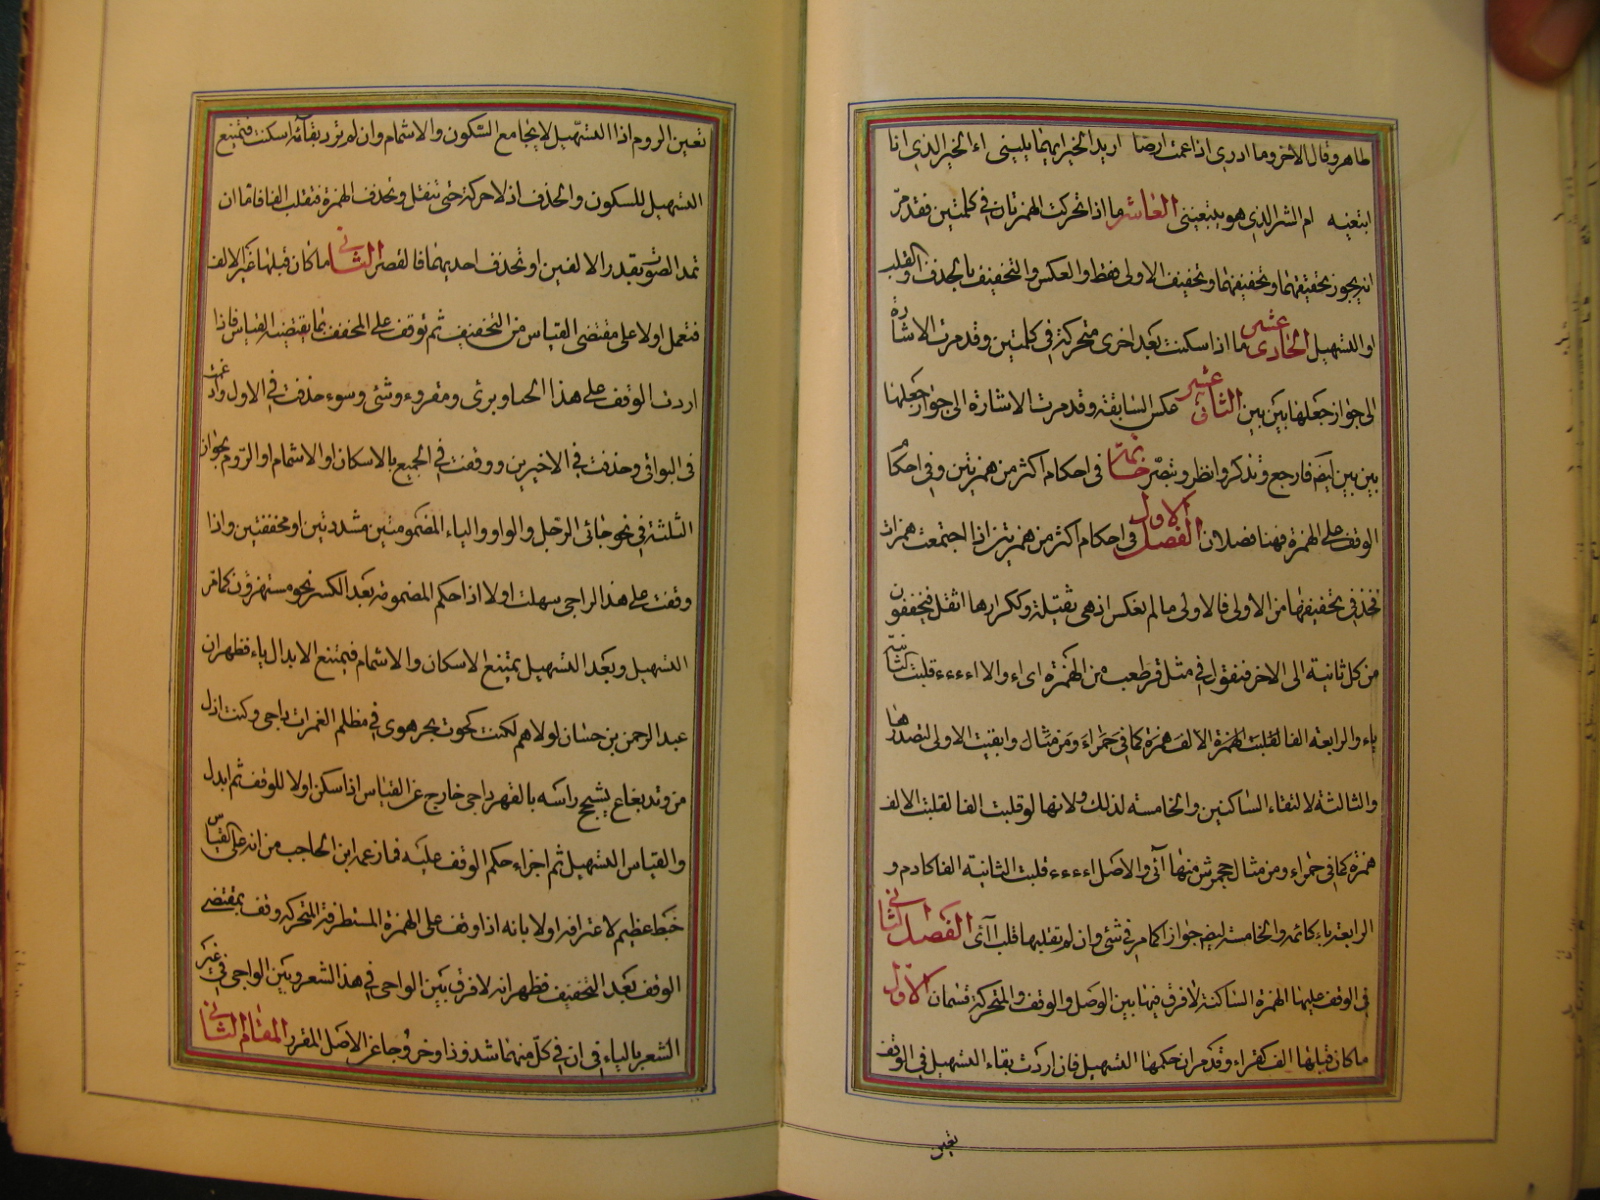 طاهر وقال الآخر وما ادری اذا عمت ارضا ارید الخیر ایهما یلینی اء الخیر الذی انا
ابتغیه ام الشر الذی هو یبتغینی العاشر ما اذا تحرکت الهمزتان فی کلمتین فقد مرّ
انه یجوز تحقیقهما وتخفیفهما وتخفیف الاولی فقط والعکس والتخفیف بالحذف او القلب
او التسهیل الحادی عشر ما اذا سکنت بعد اخری متحرکة فی کلمتین وقد مرت الاشارة
الی جواز جعلها بین بین الثانی عشر عکس السابقة وقد مرت الاشارة الی جواز جعلها
بین بین ایضا فارجع وتذکر وانظر وتبصّر خاتمة فی احکام اکثر من همزتین وفی احکام
الوقف علی الهمزة فهنا فصلان الفصل الاول فی احکام اکثر من همزتین اذا اجتمعت همزات
فخذ فی تخفیفها من الاولی فالاولی ما لم یعکس اذ هی ثقیلة وتکرارها اثقل فیخففون
من کل ثانیة الی الاخر فنقول فی مثل قرطعب من الهمزة ایاء والا اءءءء قلبت الثانیة
یاء والرابعه الفا لقلبت الهمزة الالف همزة کما فی حمراء ومن مثال وابقیت الاولی لتصدرها
والثالثة لالتقاء الساکنین والخامسه لذلک ولانها لو قلبت الفا لقلبت الالف
همزة کما فی حمراء ومن مثال جحمرش منها آئی والاصل اءءءء قلبت الثانیة الفا کادم و
الرابعة یاء کائمه والخامسة ایضا جوازا کما مر فی شئ وان لم تقلبها قلت اآئی الفصل الثانی
فی الوقف علیها الهمزة الساکنة لا فرق فیها بین الوصل والوقف والمتحرکة قسمان الاول
ما کان قبلها الف کقراء وقد مر ان حکمها التسهیل فان اردت بقاء التسهیل فی الوقف
تعین
تعین الروم اذا التسهیل لا یجامع السکون والاشمام وان لم ترد بقائه اسکنت فیمتنع
التسهیل للسکون والحذف اذ لا حرکة حتی تنقل وتحذف الهمزة فتقلب الفا فاما ان
تمد الصوت بقدر الالفین او تحذف احدیهما فالقصر الثانی ما کان قبلها غیر الالف
فتعمل اولا علی مقتضی القیاس من التخفیف ثم توقف علی المخفف بما یقتضیه القیاس فاذا
اردت الوقف علی هذا الخباء وبرئ ومقروء وشئ وسوء حذفت فی الاول وادغمت
فی البواقی وحذفت فی الاخیرین ووقفت فی الجمیع بالاسکان او الاشمام او الروم بجواز
الثلثة فی نحو جائی الرجل والواو والیاء المضمومتین مشددتین او مخففتین واذا
وقفت علی هذا الراجی سهلت اولا اذا حکم المضمومة بعد الکسر نحو مستهزؤن کما مر
التسهیل وبعد التسهیل یمتنع الاسکان والاشمام فیمتنع الابدال یاء فظهر ان
عبد الرحمن بن حسان لولاهم لکنت کحوت بحر هوی فی مظلم الغمرات داجی وکنت اذل
من وتد بقاع یشجج راسه بالفهر داجی خارج عن القیاس اذا سکن اولا للوقف ثم ابدل
والقیاس التسهیل ثم اجراء حکم الوقف علیه فما زعمه ابن الحاجب من انه علی القیاس
خبط عظیم لاعترافه اولا بانه اذا وقف علی الهمزة المتطرفة المتحرکة وقف بمقتضی
الوقف بعد التخفیف فظهر انه لا فرق بین الواجی فی هذا الشعر وبین الواجی فی غیر
الشعر بالیاء فی ان فی کل منهما شذوذا وخروجا عن الاصل المقرر المقام الثانی